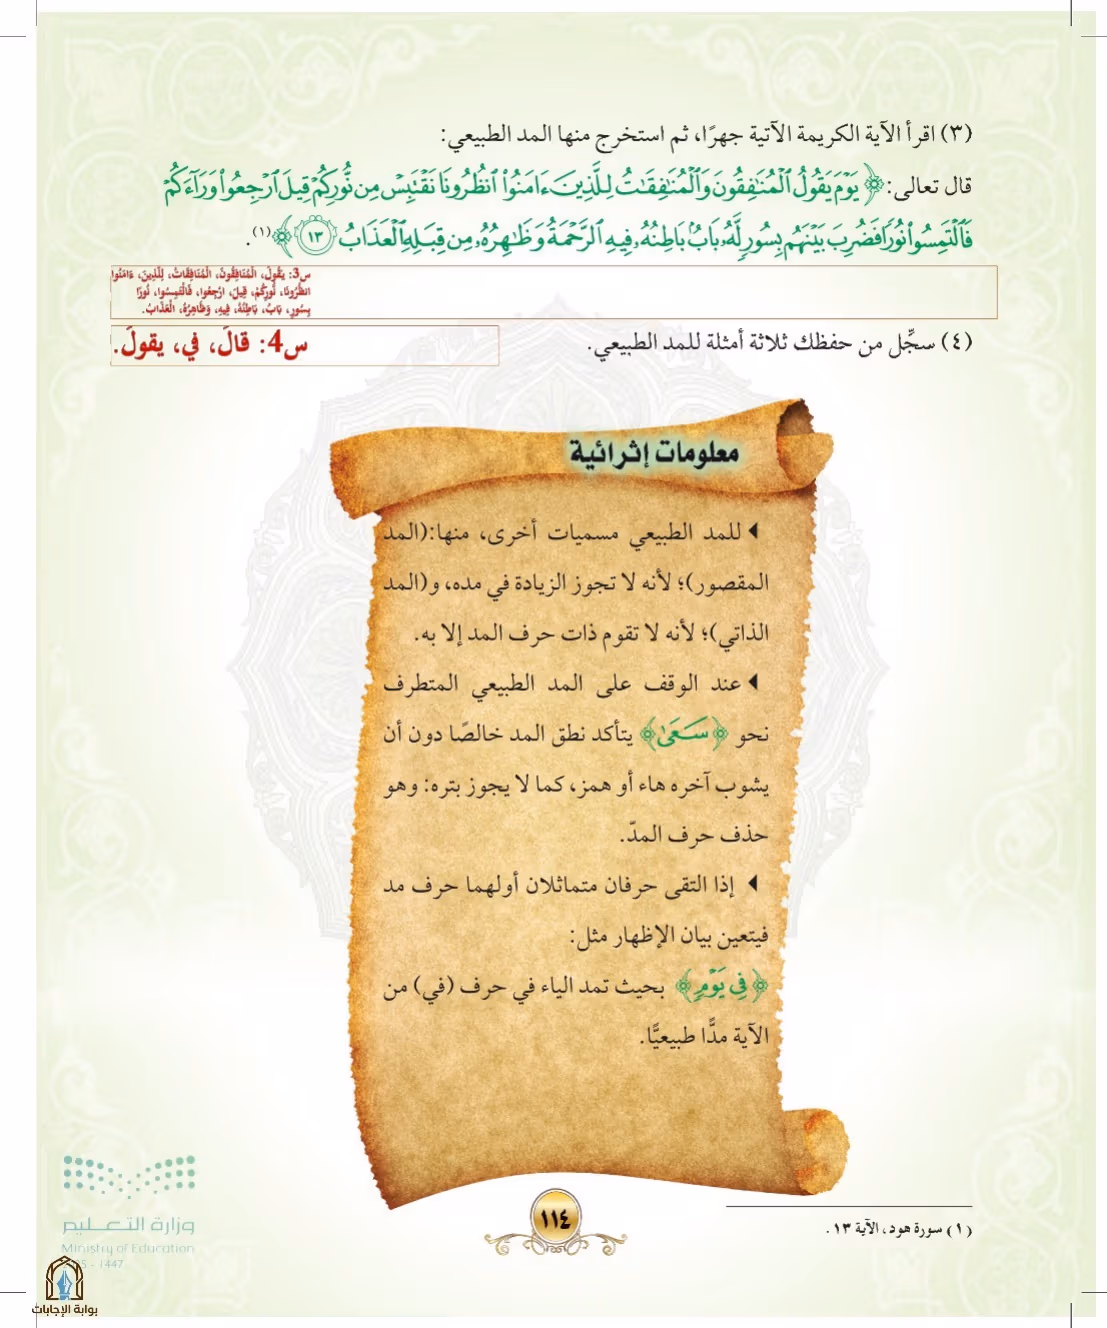 (٣) اقرأ الآية الكريمة الآتية جهرًا، ثم استخرج منها المد الطبيعي:
قال تعالى: ﴿ يَوْمَ يَقُولُ ٱلْمُنَٰفِقُونَ وَٱلْمُنَٰفِقَٰتُ لِلَّذِينَ ءَامَنُوا۟ ٱنظُرُونَا نَقْتَبِسْ مِن نُّورِكُمْ قِيلَ ٱرْجِعُوا۟ وَرَآءَكُمْ
فَٱلْتَمِسُوا۟ نُورًا فَضُرِبَ بَيْنَهُم بِسُورٍ لَّهُۥ بَابٌۢ بَاطِنُهُۥ فِيهِ ٱلرَّحْمَةُ وَظَٰهِرُهُۥ مِن قِبَلِهِ ٱلْعَذَابُ ١٣ ﴾(١).
س3: يَقُولُ، الْمُنَافِقُونَ، الْمُنَافِقَاتُ، لِلَّذِينَ، ءَامَنُوا
انظُرُونَا، نُّورِكُمْ، قِيلَ، ارْجِعُوا، فَالْتَمِسُوا، نُورًا
بِسُورٍ، بَابٌ، بَاطِنُهُ، فِيهِ، وَظَاهِرُهُ، الْعَذَابُ.
(٤) سجِّل من حفظك ثلاثة أمثلة للمد الطبيعي.
س4: قالَ، في، يقولَ.
معلومات إثرائية
للمد الطبيعي مسميات أخرى، منها:(المد
المقصور)؛ لأنه لا تجوز الزيادة في مده، و(المد
الذاتي)؛ لأنه لا تقوم ذات حرف المد إلا به.
عند الوقف على المد الطبيعي المتطرف
نحو ﴿سَعَىٰ﴾ يتأكد نطق المد خالصًا دون أن
يشوب آخره هاء أو همز، كما لا يجوز بتره: وهو
حذف حرف المدّ.
إذا التقى حرفان متماثلان أولهما حرف مد
فيتعين بيان الإظهار مثل:
﴿فِى يَوْمٍ﴾ بحيث تمد الياء في حرف (في) من
الآية مدًّا طبيعيًّا.
(١) سورة هود، الآية ١٣.
١١٤
وزارة التعليم
Ministry of Education
5 - 1447
بوابة الإجابات